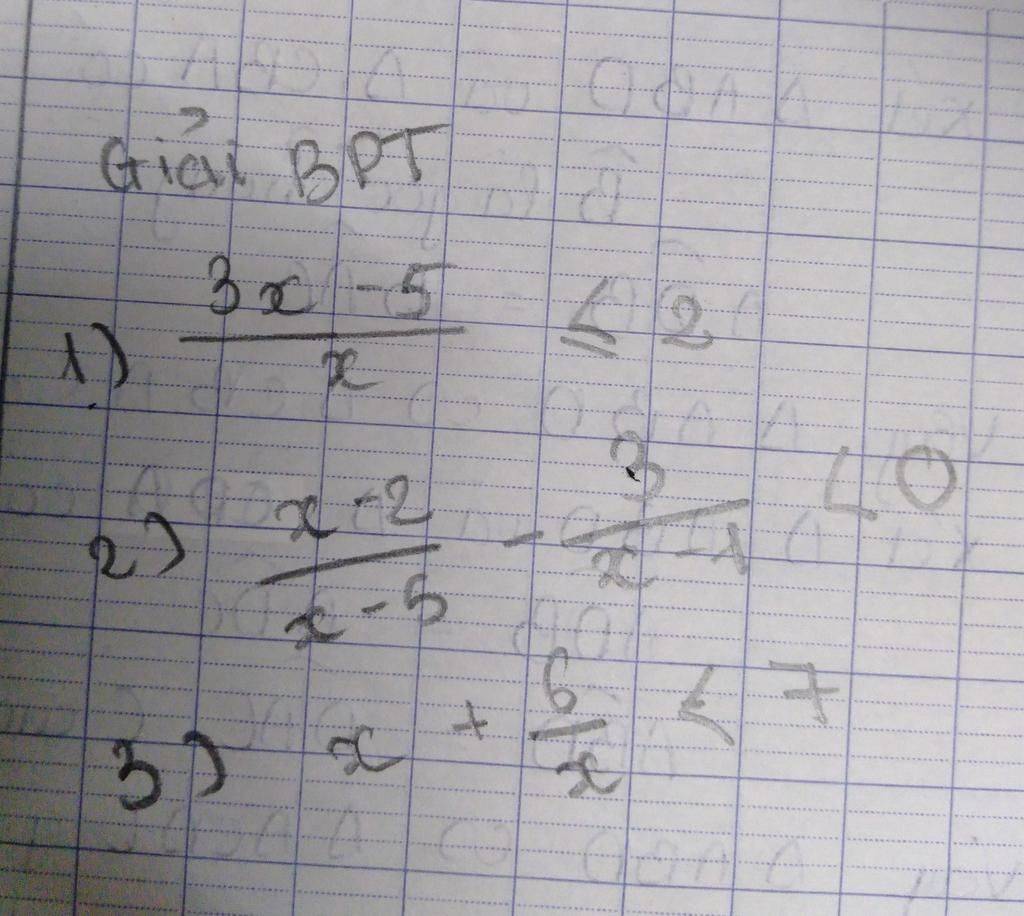 Giải BPT
1) \frac{3x - 5}{x} ≤ 2
2) \frac{x - 2}{x - 5} - \frac{3}{x - 1} < 0
3) x + \frac{6}{x} < 7